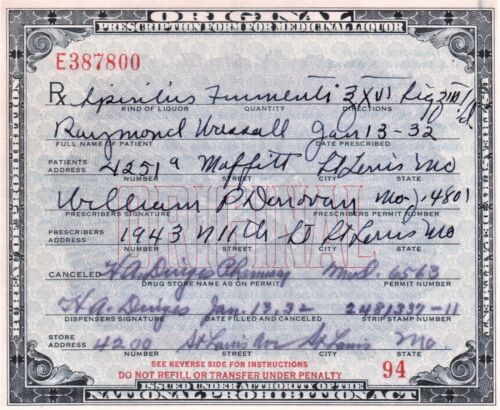 ORIGINAL
PRESCRIPTION FORM FOR MEDICINAL LIQUOR
E387800
Rx Spiritus Frumenti ʒXVI Sig
KIND OF LIQUOR QUANTITY DIRECTIONS
Raymond Wessall Jan 13-32
FULL NAME OF PATIENT DATE PRESCRIBED
PATIENTS ADDRESS 4251a Moffitt St Louis Mo
NUMBER STREET CITY STATE
William P Donovan Mo. 4801
PRESCRIBERS SIGNATURE PRESCRIBERS PERMIT NUMBER
PRESCRIBERS ADDRESS 1943 N 11th St St Louis Mo
NUMBER STREET CITY STATE
CANCELED H.A. Dinges Pharmacy 6563
DRUG STORE NAME AS ON PERMIT PERMIT NUMBER
H.A. Dinges Jan 13.32 2481337-11
DISPENSERS SIGNATURE DATE FILLED AND CANCELED STRIP STAMP NUMBER
STORE ADDRESS 4200 St Louis Ave St Louis Mo.
NUMBER STREET CITY STATE
SEE REVERSE SIDE FOR INSTRUCTIONS
DO NOT REFILL OR TRANSFER UNDER PENALTY 94
ISSUED UNDER AUTHORITY OF THE
NATIONAL PROHIBITION ACT
ORIGINAL